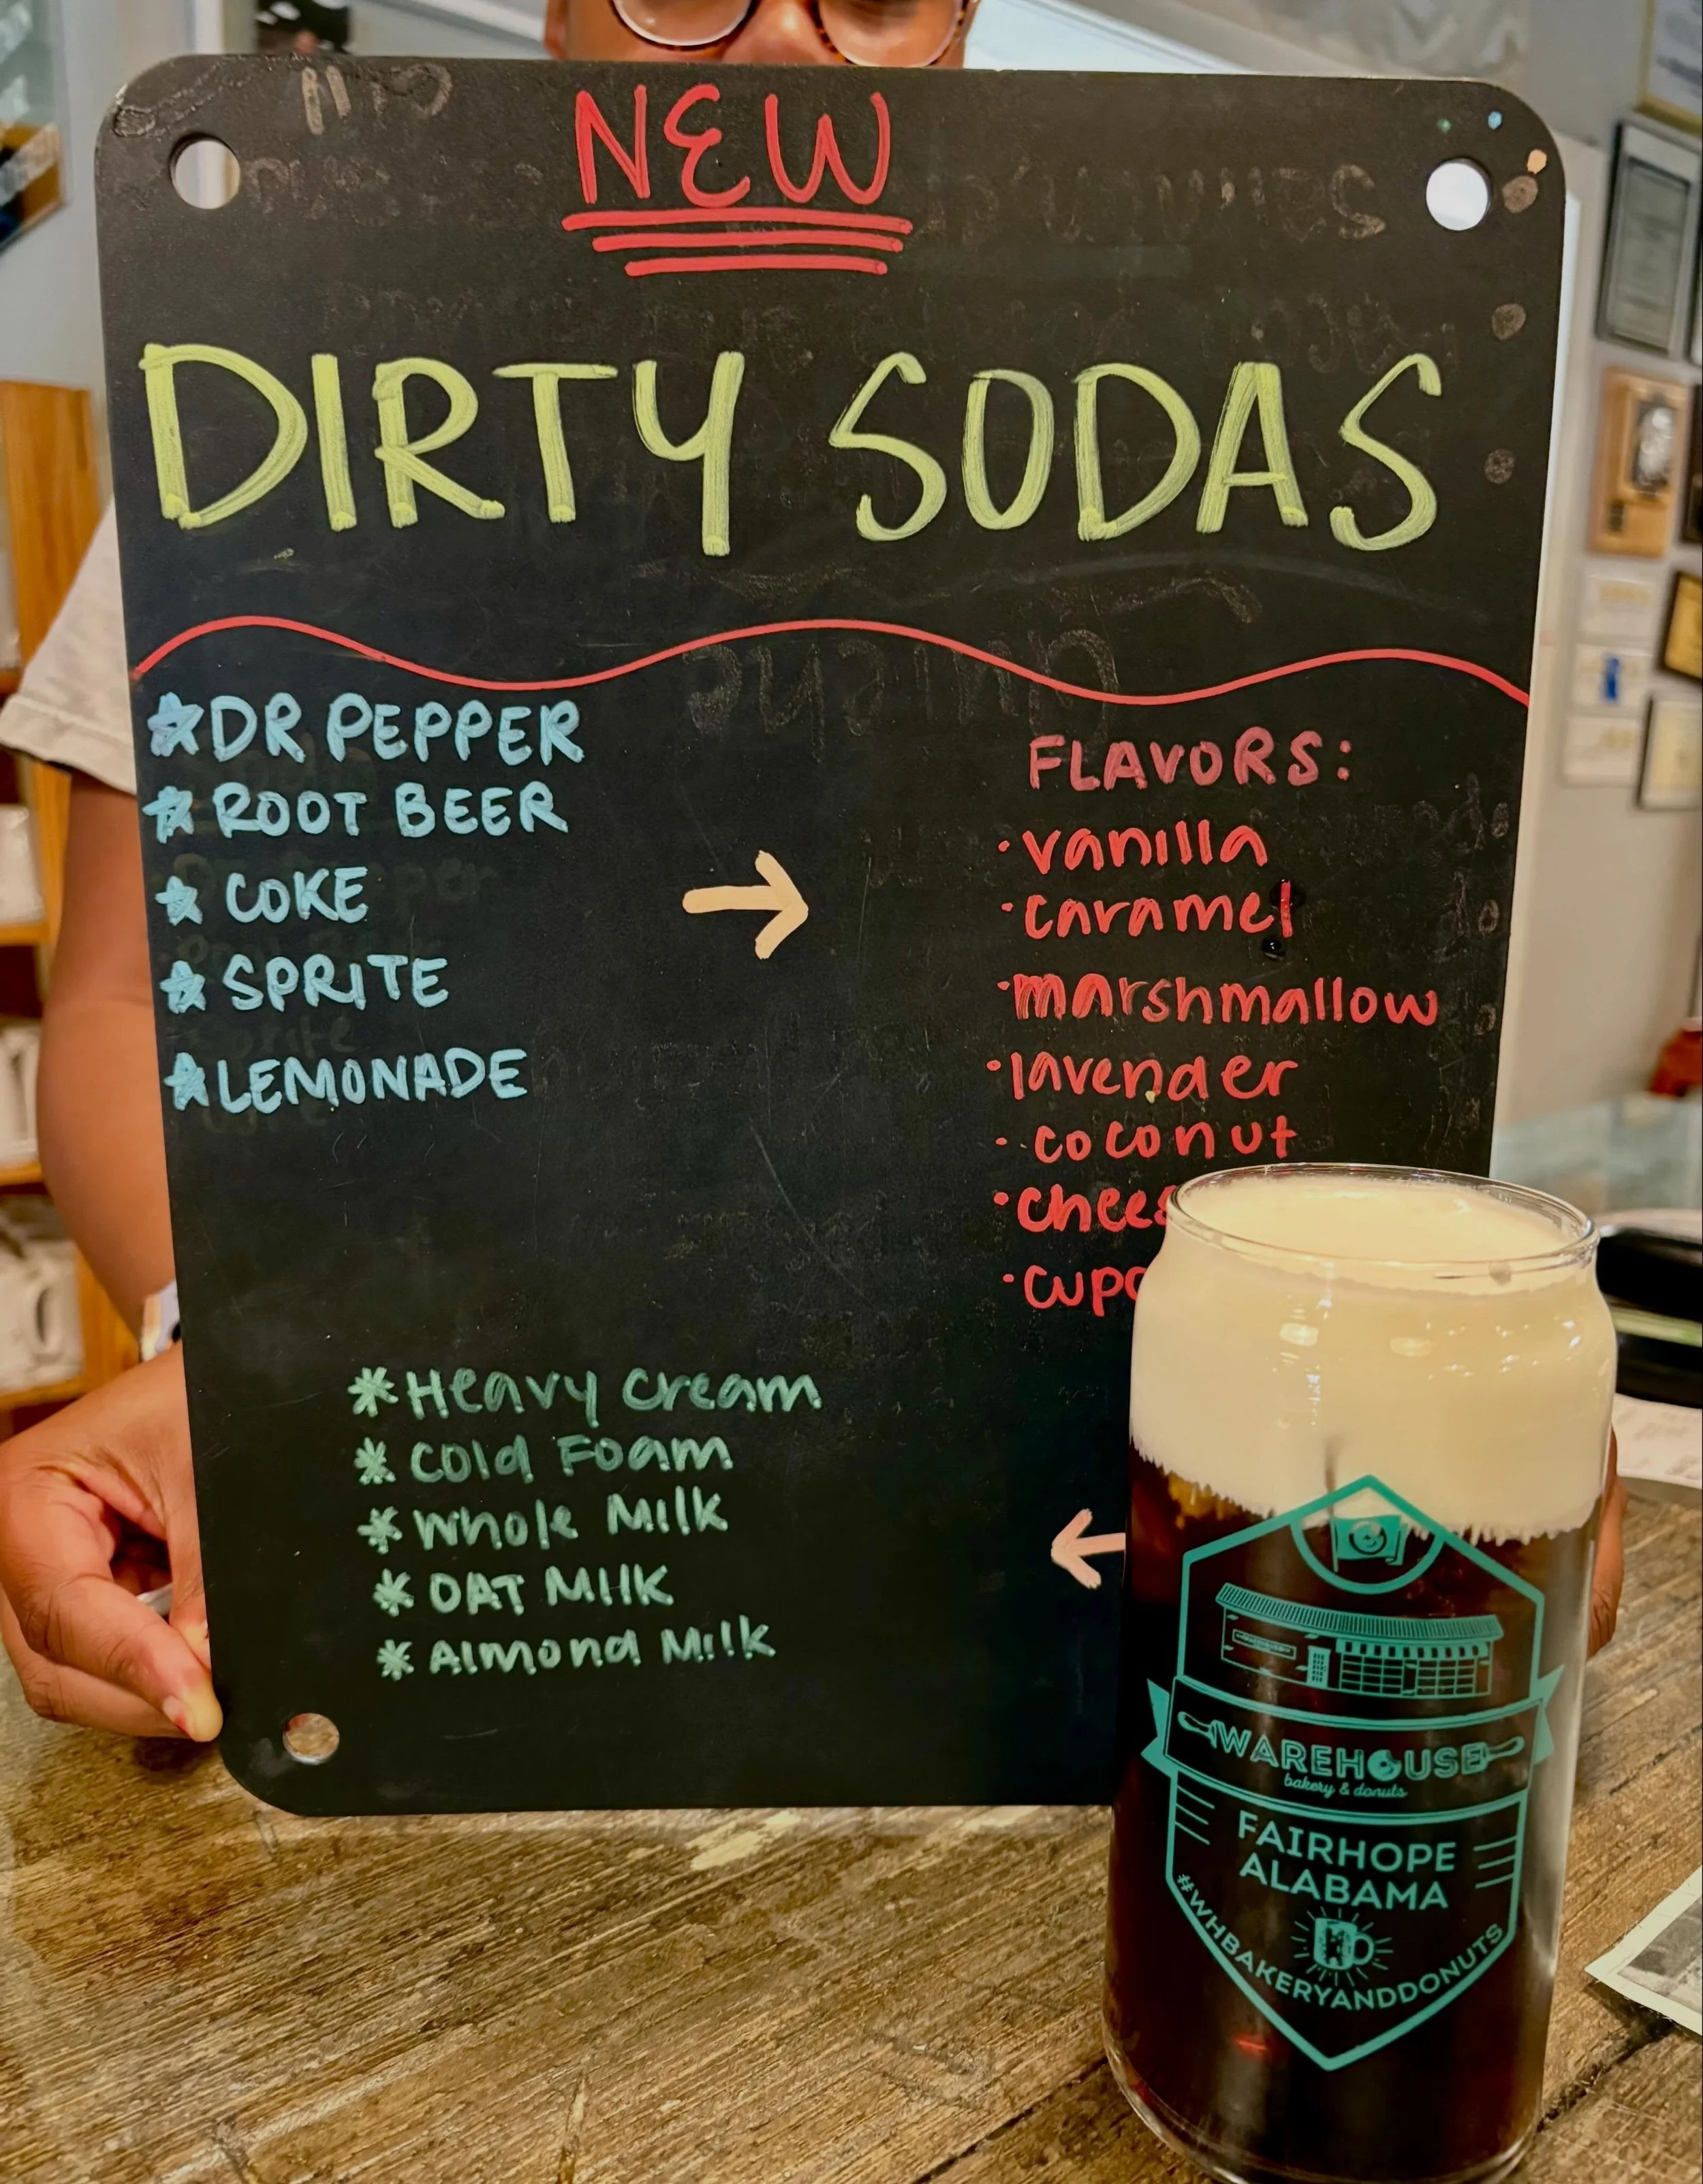 NEW
DIRTY SODAS
DR PEPPER
ROOT BEER
COKE
SPRITE
LEMONADE
FLAVORS:
vanilla
caramel
marshmallow
lavender
coconut
Heavy Cream
Cold Foam
Whole Milk
OAT MILK
Almond Milk
WAREHOUSE
bakery & donuts
FAIRHOPE
ALABAMA
#WHBAKERYANDDONUTS